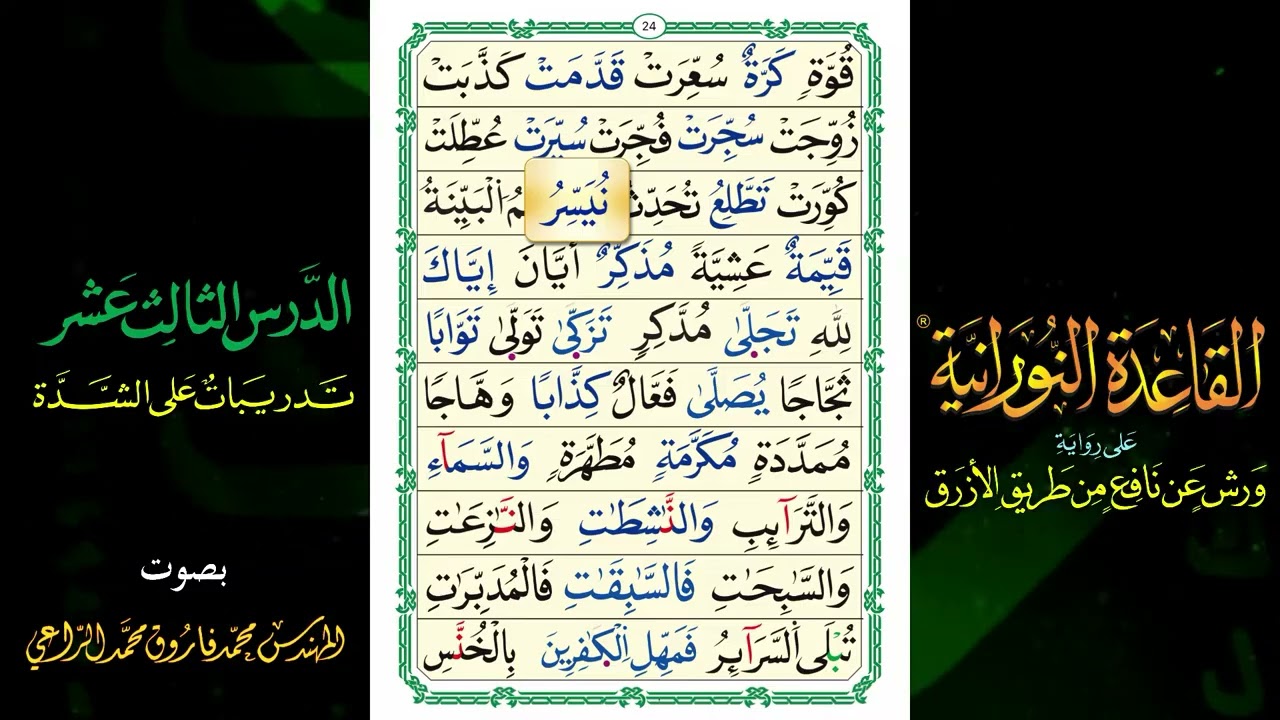 24
قُوَّةٍ كَرَّةٌ سُعِّرَتْ قَدَّمَتْ كَذَّبَتْ
زُوِّجَتْ سُجِّرَتْ فُجِّرَتْ سُيِّرَتْ عُطِّلَتْ
كُوِّرَتْ تَطَّلِعُ تُحَدِّثُ نُيَسِّرُ مُ اُ۬لْبَيِّنَةُ
قَيِّمَةٌ عَشِيَّةً مُذَكِّرٌ أَيَّانَ إِيَّاكَ
لِلهِ تَجَلّىٰ مُدَّكِرٍ تَزَكّىٰ تَوَلّىٰ تَوَّابًا
ثَجَّاجًا يُصَلّىٰ فَعَّالٌ كِذَّابًا وَهَّاجًا
مُمَدَّدَةٍ مُكَرَّمَةٍ مُطَهَّرَةٍ وَالسَّمَآءِ
وَالتَّرَآئِبِ وَالنَّٰشِطَٰتِ وَالنَّٰزِعَٰتِ
وَالسَّٰبِحَٰتِ فَالسَّٰبِقَٰتِ فَالْمُدَبِّرَٰتِ
تُبْلَى اَ۬لسَّرَآئِرُ فَمَهِّلِ اِ۬لْكٰ۪فِرِينَ بِالْخُنَّسِ
الدَّرس الثالث عَشر
تَدريبَاتٌ عَلى الشَّدَّة
بصوت
المهندس محمّد فاروق محمَّد الرّاعي
القَاعِدَة النُّورَانيَّة ®
عَلى رِوَايَةِ
وَرش عَن نَافِعٍ مِن طَريقِ الأزرَق